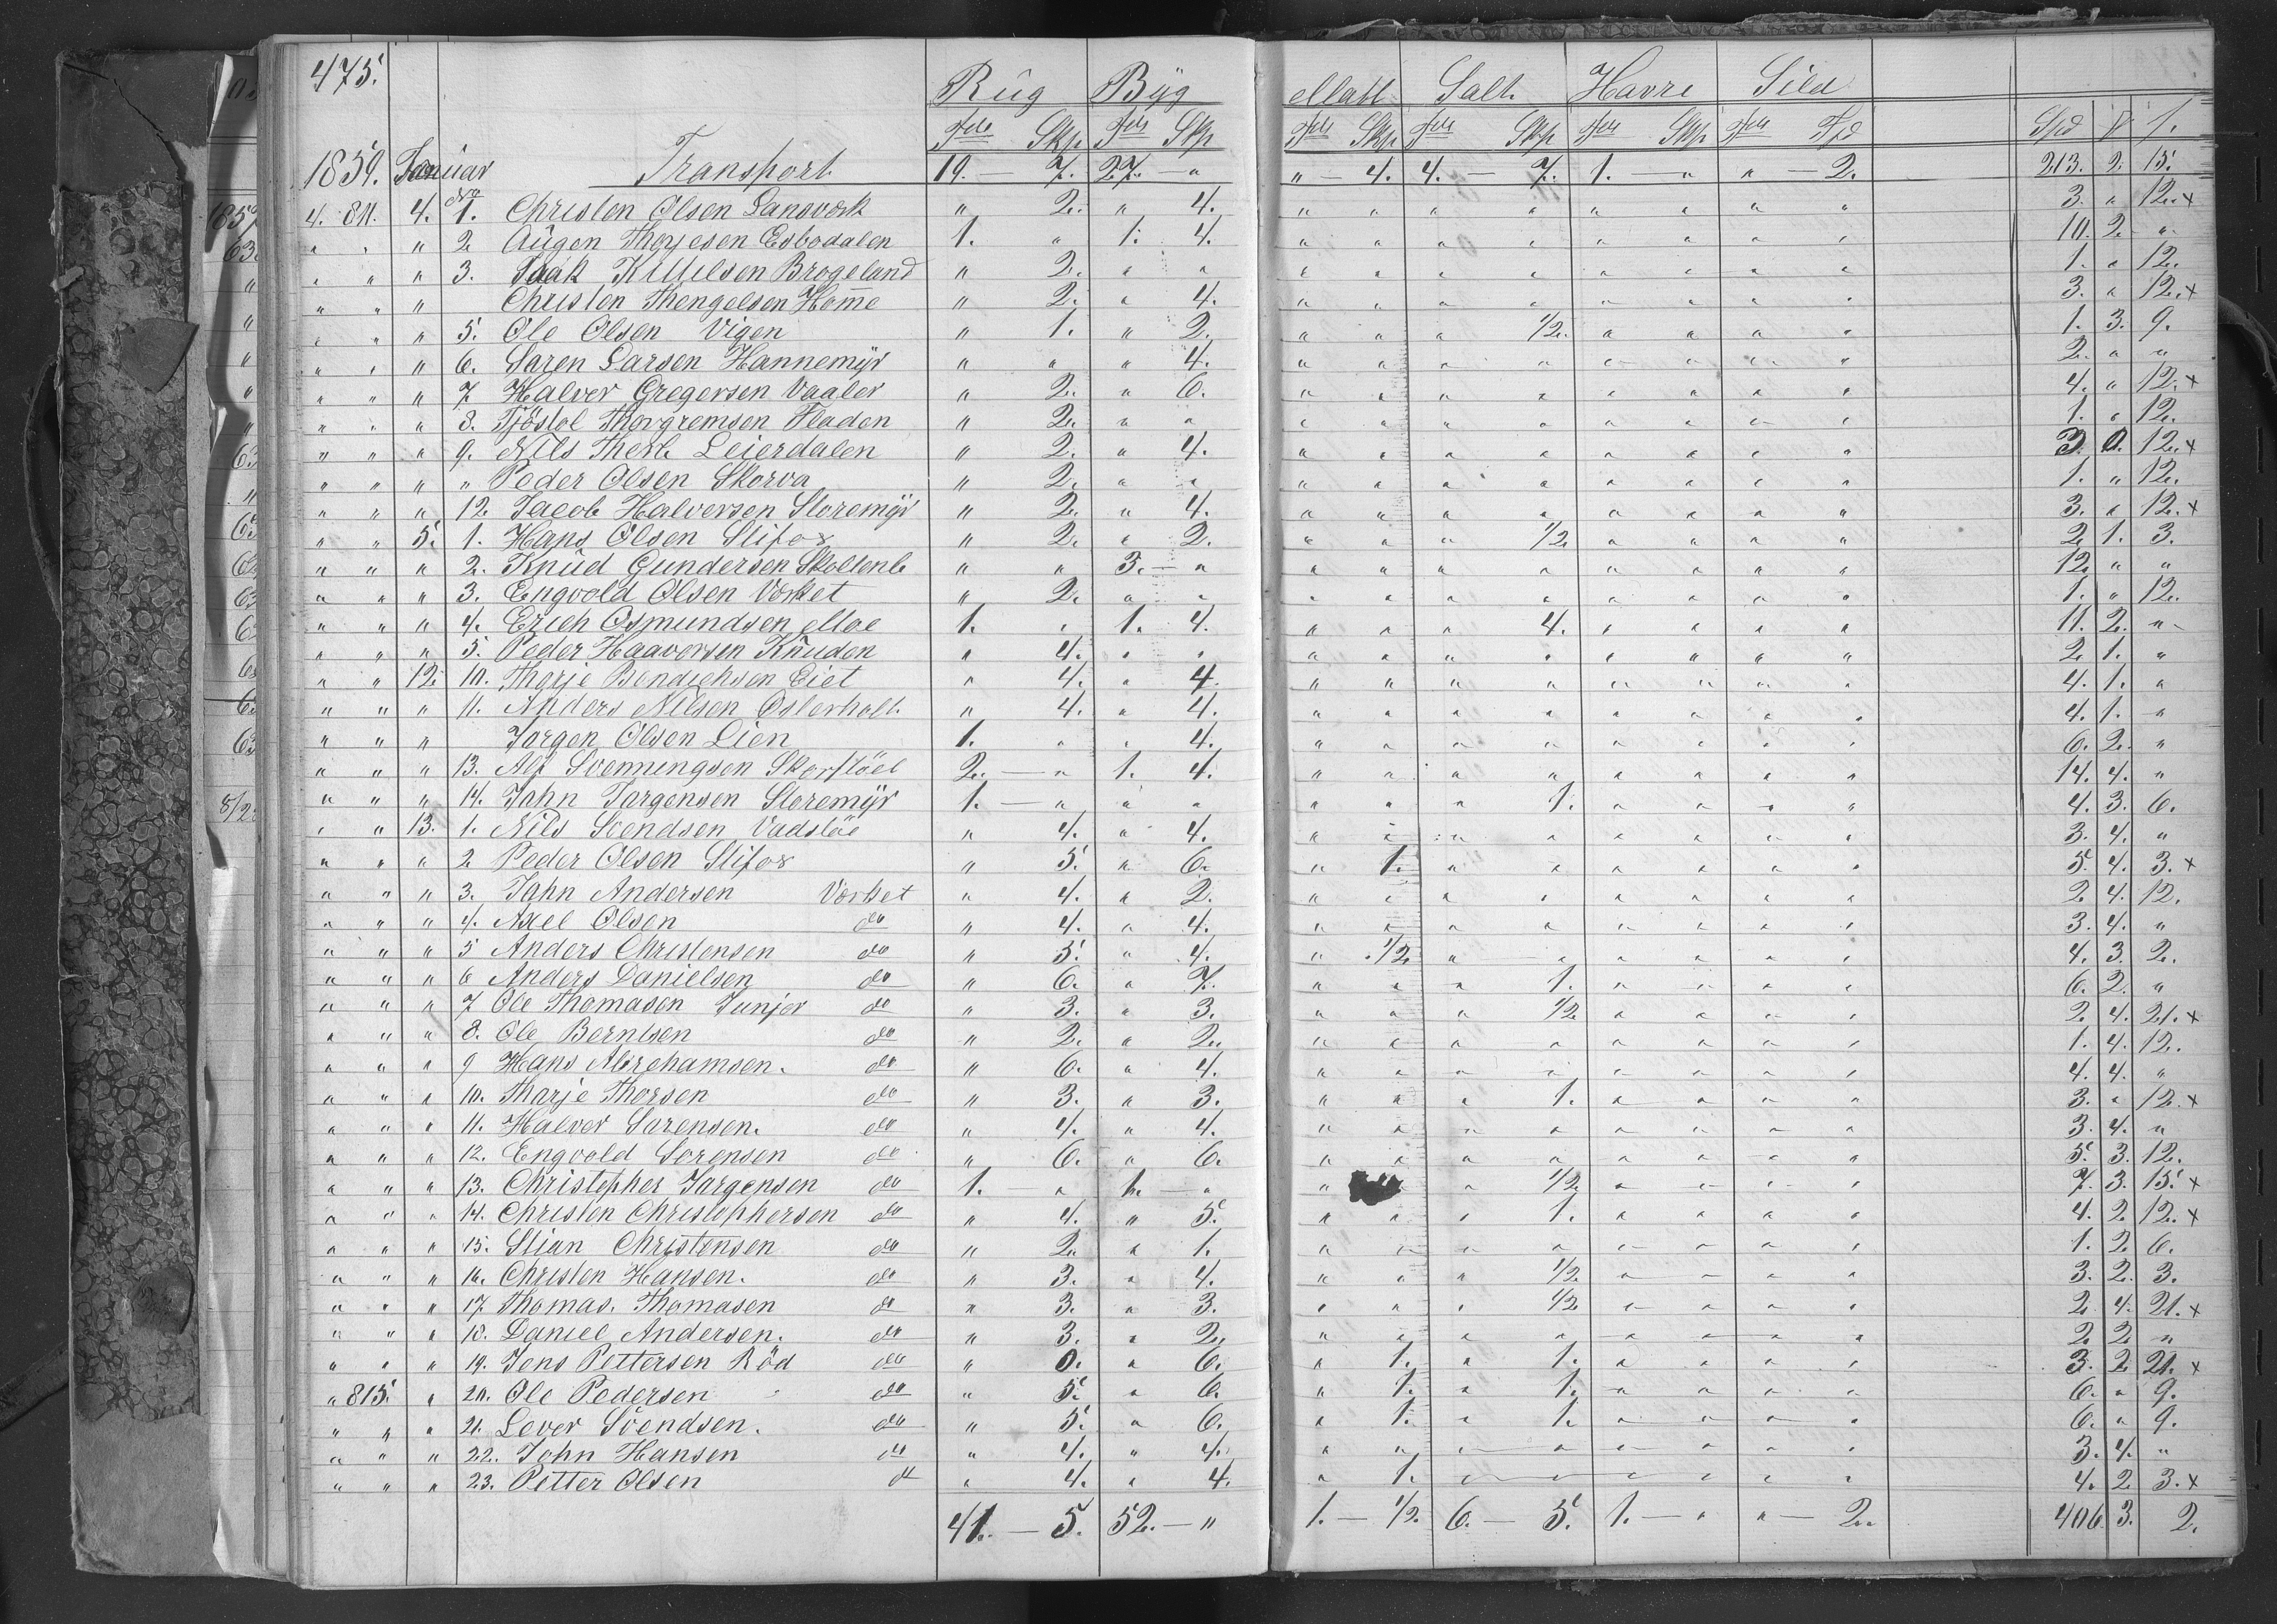 475.
Rug Byg Malt Salt Havre Sild
Tdr Skp Tdr Skp Tdr Skp Tdr Skp Tdr Skp Tdr Tdr Spd
1859. Januar Transport 19. — 7. 27. — " " — 4. 4. — 7. 1. — " " — 2. 213. 2. 15.
4. 811. 4. 1. Christen Olsen " 2. " 4. " " " " " " " " 3. " 12. x
" " " 2 Augen Thorjesen Esbodalen 1. " 1. 4. " " " " " " " " 10. 2. "
" " " 3. Isaak Killilsen Brogeland " 2. " " " " " " " " " " 1. " 12.
" " " Christen Thengelsen Homme " 2. " 4. " " " " " " " " 3. " 12. x
" " " 5. Ole Olsen Vigen " 1. " 2. " " " 1/2. " " " " 1. 3. 9.
" " " 6. Søren Larsen Hannemyr " " " 4. " " " " " " " " 2. " "
" " " 7 Halvor Gregersen Vaaler " 2. " 6. " " " " " " " " 4. " 12. x
" " " 8. Tjöstol Thorgremsen Fladen " 2. " " " " " " " " " " 1. " 12.
" " " 9. Nils Therk. Leierdalen " 2. " 4. " " " " " " " " 3. 0. 12. x
" " " " Peder Olsen Skorva " 2. " " " " " " " " " " 1. " 12.
" " " 12. Jacob Halversen Storemyr " 2. " 4. " " " " " " " " 3. " 12. x
" " 5. 1. Hans Olsen Stifos " 2. " 2. " " " 1/2 " " " " 2 1. 3.
" " " 2. Knud Gundersen Skollenb " " 3. — " " " " " " " " " 12. " "
" " " 3. Engvold Olsen Værket " 2. " " " " " " " " " " 1. " 12.
" " " 4. Erich Osmundsen Moe 1. " 1. 4. " " " 4. " " " " 11. 2. "
" " " 5. Peder Haaversen Knuden " 4. " " " " " " " " " " 2 1. "
" " 12. 10. Thorje Bendichsen Eiet " 4. " 4. " " " " " " " " 4. 1. "
" " " 11. Anders Nilsen Osterholt. " 4. " 4. " " " " " " " " 4. 1. "
" " " Jørgen Olsen Lien 1. " " 4. " " " " " " " " 6. 2. "
" " " 13. Alf Svenningsen Skorstöel 2. — " 1. 4. " " " " " " " " 14. 4. "
" " " 14. John Jørgensen Storemyr 1. — " " " " " " 1. " " " " 4. 3. 6.
" " 13. 1. Nils Svendsen Vadstöe " 4. " 4. " " " " " " " " 3. 4. "
" " " 2 Peder Olsen Stifos " 5. " 6. " 1. " " " " " " 5. 4. 3. x
" " " 3. John Andersen Værket " 4. " 2. " " " " " " " " 2 4. 12.
" " " 4. Axel Olsen do " 4. " 4. " " " " " " " " 3. 4. "
" " " 5 Anders Christensen do " 5. " 4. " 1/2 " " " " " " 4. 3. 2.
" " " 6 Anders Danielsen do " 6. " 7. " " " 1. " " " " 6. 2. "
" " " 7 Ole Thomasen Junior do " 3. " 3. " " " 1/2 " " " " 2. 4. 21. x
" " " 8. Ole Berntsen do " 2. " 2. " " " " " " " " 1. 4. 12.
" " " 9 Hans Abrehamsen. do " 6. " 4. " " " " " " " " 4. 4. "
" " " 10. Tharje Thorsen do " 3. " 3. " " " 1. " " " " 3. " 12. x
" " " 11. Halvor Sørensen. do " 4. " 4. " " " " " " " " 3. 4. "
" " " 12. Engvold Sørensen do " 6. " 6. " " " " " " " " 5. 3. 12.
" " " 13. Christopher Jørgensen do 1. " 1. — " " " 1/2 " " " " 7. 3. 15. x
" " " 14. Christen Christophersen do " 4. " 5. " " " 1. " " " " 4. 2 12. x
" " " 15. Stian Christensen do " 2. " 1. " " " " " " " " 1. 2. 6.
" " " 16. Christen Hansen. do " 3. " 4. " " " 1/2 " " " " 3. 2. 3.
" " " 17. Thomas Thomasen do " 3. " 3. " " " 1/2 " " " " 2 4. 21. x
" " " 18. Daniel Andersen. do " 3. " 2. " " " " " " " " 2. 2. "
" " " 19. Jens Pettersen Röd do " 0. " 6. " 1. " 1. " " " " 3. 2 21. x
" 815. " 20. Ole Pedersen do " 5. " 6. " 1. " 1. " " " " 6. " 9.
" " " 21. Lever Svendsen. do " 5. " 6. " 1. " 1. " " " " 6. " 9.
" " " 22. John Hansen do " 4. " 4. " " " " " " " " 3. 4. "
" " " 23. Petter Olsen do " 4. " 4. " 1. " " " " " " 4. 2 3. x
41. — 5. 52. — " 1. — 1/2. 6. — 5. 1. — " " — 2. 406. 3. 2.